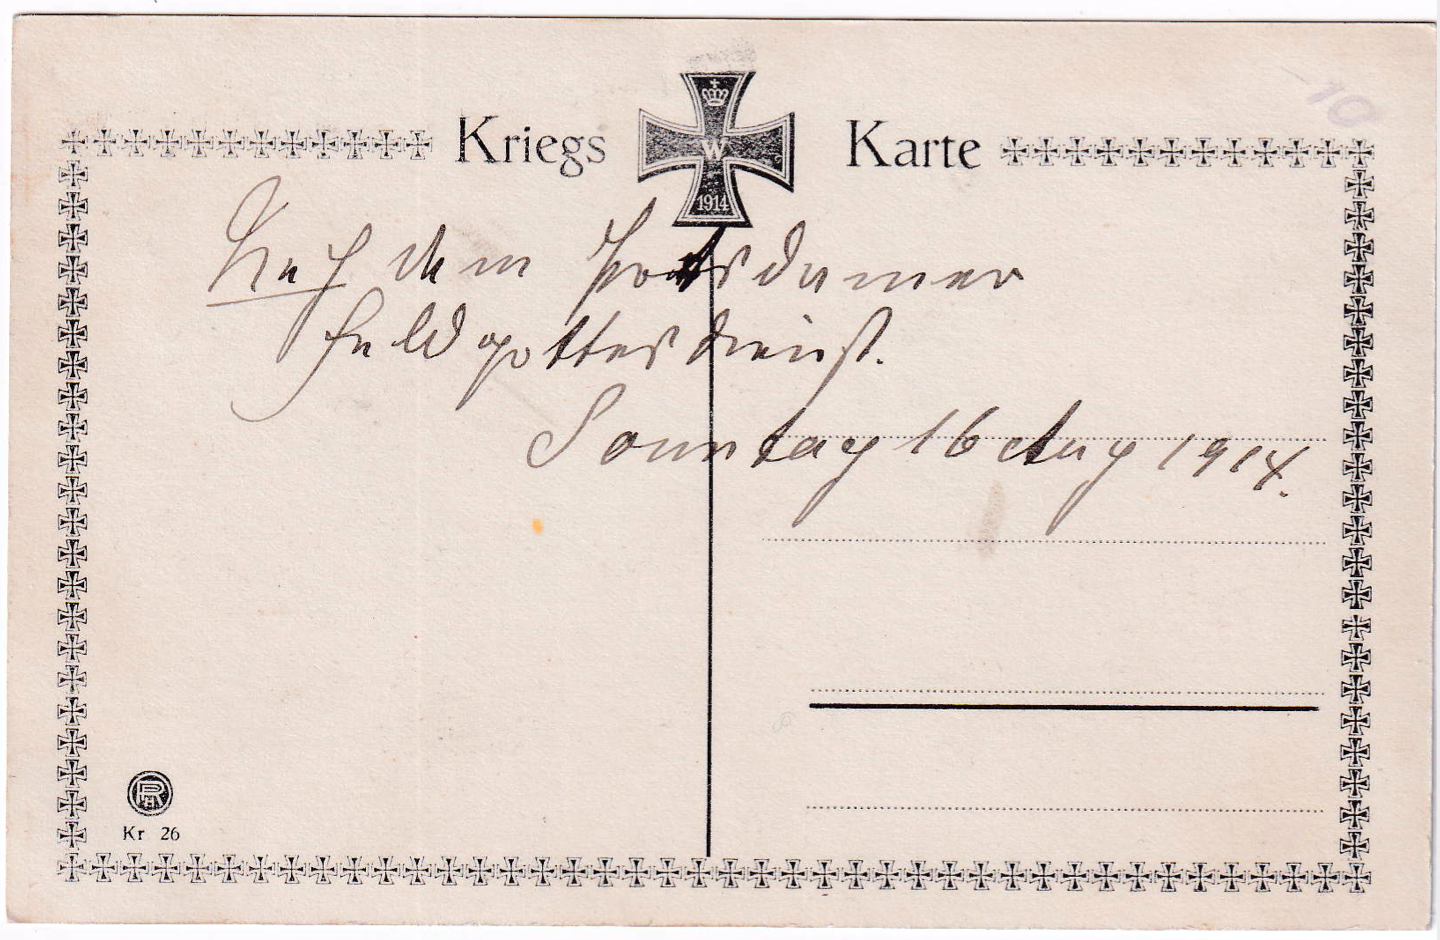 Kriegs Karte
W
1914
10
Nach dem Potsdamer
Feldgottesdienst.
Sonntag 16 Aug 1914.
Kr 26